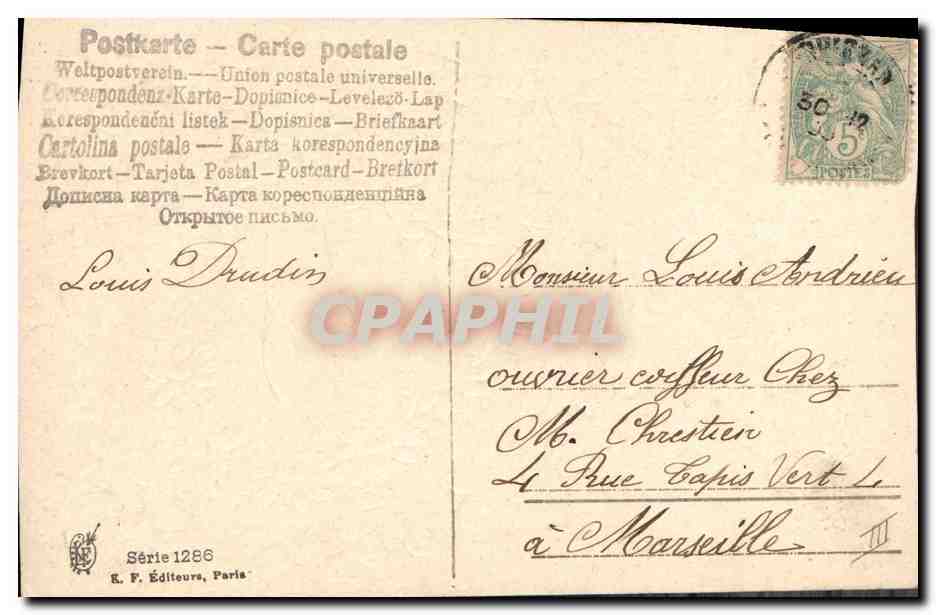 Postkarte – Carte postale
Weltpostverein. — Union postale universelle.
Correspondenz-Karte – Dopisnice – Levelező-Lap
Korespondenční listek – Dopisnica – Briefkaart
Cartolina postale – Karta korespondencyjna
Brevkort – Tarjeta Postal – Postcard – Brefkort
Дописна карта — Карта кореспонденційна
Открытое письмо.
5
POSTES
30
12
Louis Drudin
Monsieur Louis Andrieu
CPAPHIL
ouvrier coiffeur Chez
M. Chrestien
4 Rue Tapis Vert 4
à Marseille
III
Série 1286
K. F. Éditeurs, Paris